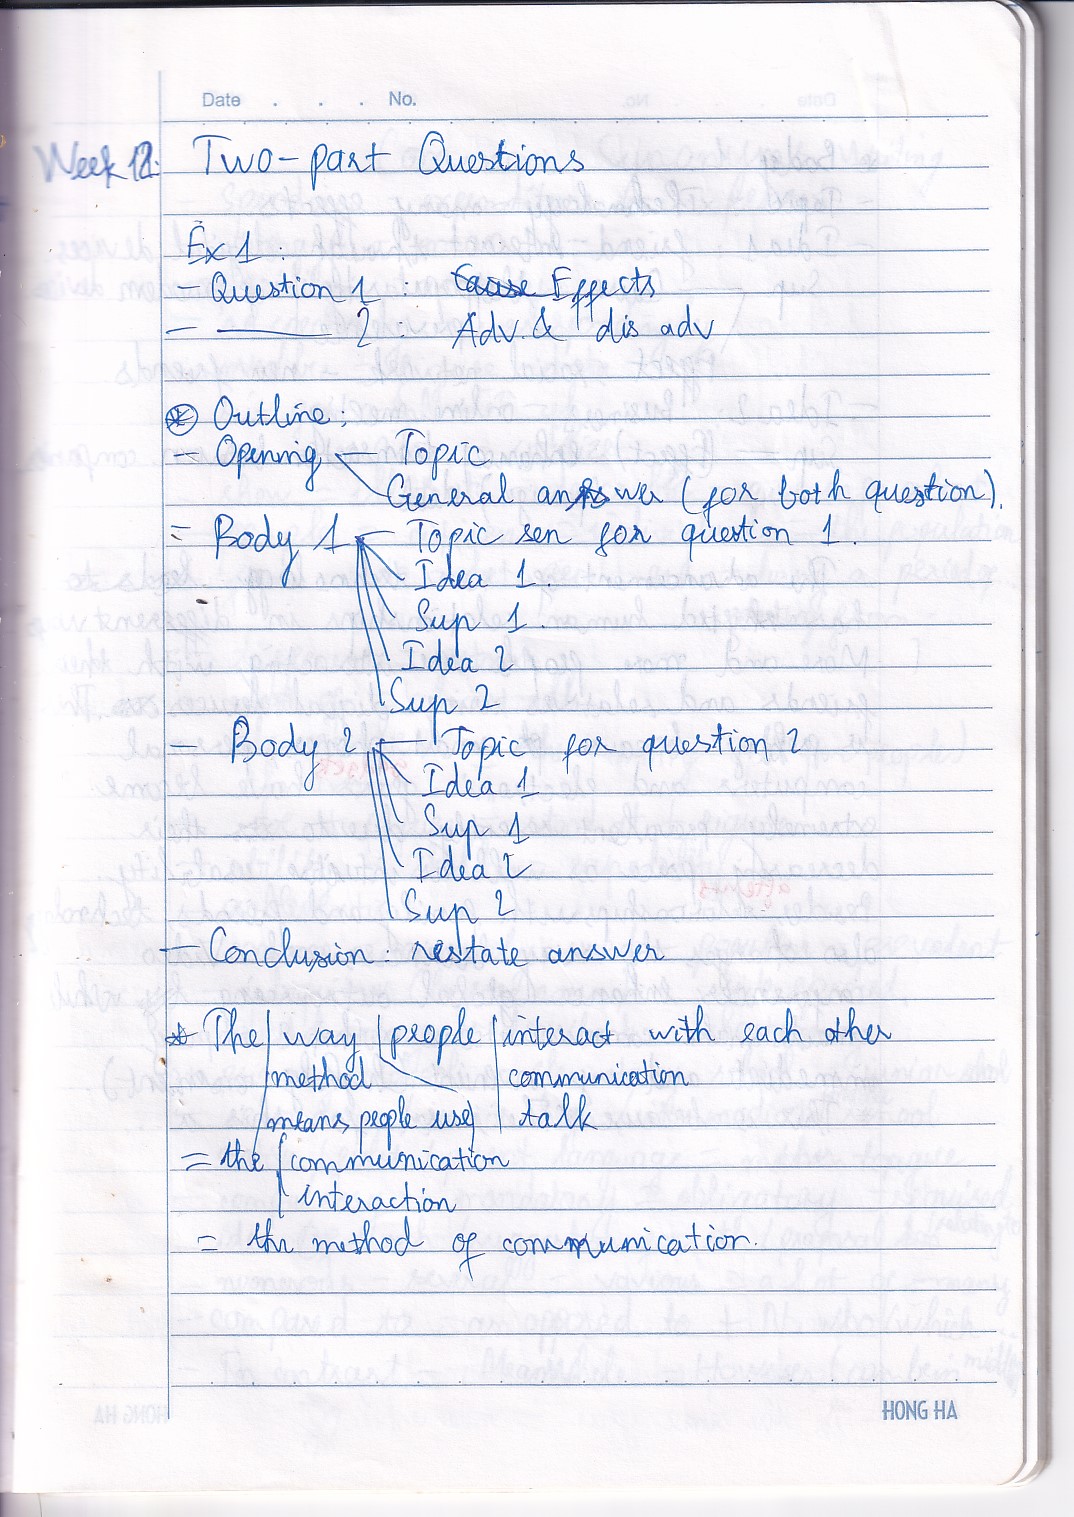 Date . . . No.
Week 12: Two-part Questions
Ex 1:
- Question 1 : Cause Effects
- ——— 2 : Adv. & dis adv
* Outline:
- Openning - Topic
General answer (for both question).
= Body 1 - Topic sen for question 1.
Idea 1.
Sup 1.
Idea 2
Sup 2
- Body 2 - Topic for question 2
Idea 1
Sup 1
Idea 2
Sup 2
- Conclusion: restate answer
* The / way / people / interact with each other
method communication
means people use talk
= the communication
interaction
= the method of communication.
HONG HA